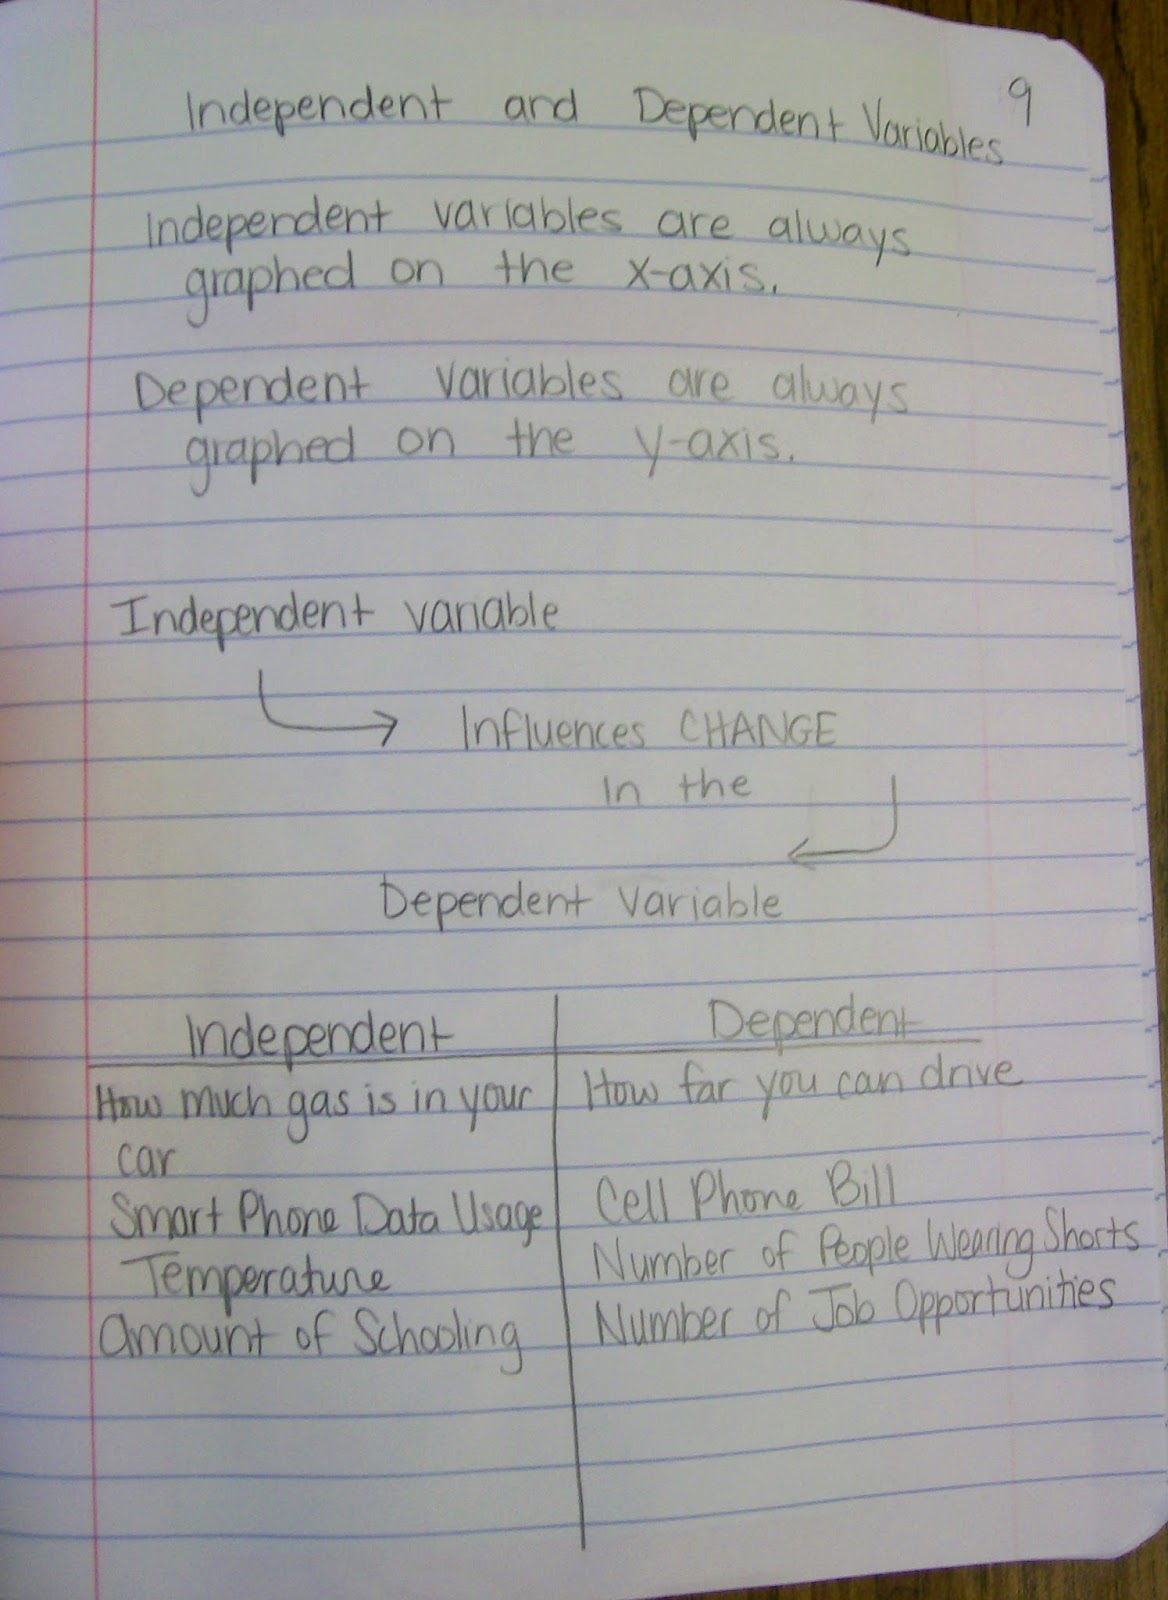 9
Independent and Dependent Variables
Independent variables are always
graphed on the x-axis.
Dependent variables are always
graphed on the y-axis.
Independent variable
Influences CHANGE
in the
Dependent Variable
Independent Dependent
How much gas is in your How far you can drive
car
Smart Phone Data Usage Cell Phone Bill
Temperature Number of People Wearing Shorts
Amount of Schooling Number of Job Opportunities